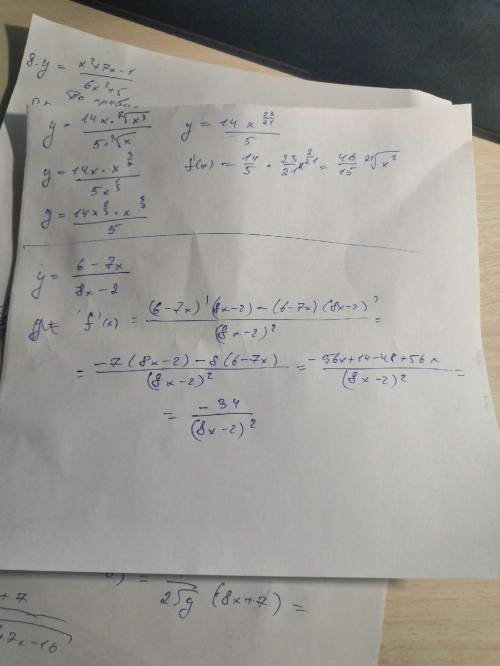 8. y = (x²+7x-1)/(6x²+5)
y = (14x·⁷√x³)/(5·³√x)    y = (14x^(23/21))/5
y = (14x·x^(3/7))/(5x^(1/3))    f'(x) = 14/5 · 23/21 x^(2/21) = 46/15 ²¹√x²
y = 6-7x/8x-2
f'(x) = ((6-7x)'(8x-2)-(6-7x)(8x-2)')/(8x-2)² =
= (-7(8x-2)-8(6-7x))/(8x-2)² = (-56x+14-48+56x)/(8x-2)² =
= -34/(8x-2)²
2√y (8x+7) =